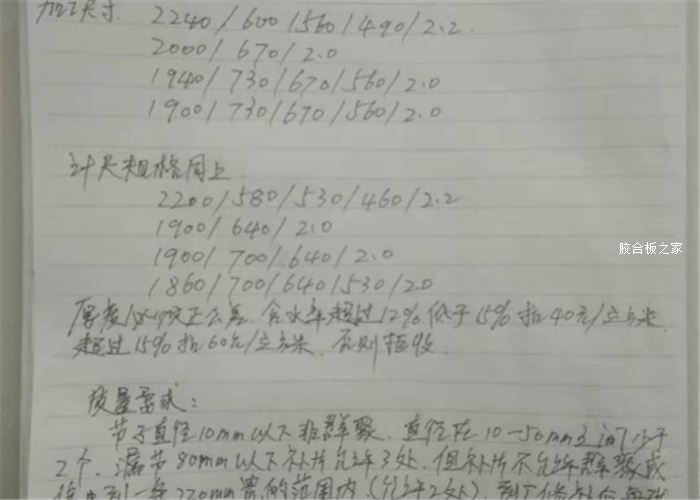 加工尺寸 2240/600/560/490/2.2
2000/670/2.0
1940/730/670/560/2.0
1900/730/670/560/2.0
计尺规格同上
2200/580/530/460/2.2
1900/640/2.0
胶合板之家
1900/700/640/2.0
1860/700/640/530/2.0
厚度 正公差 含水率超过12%低于15%扣40元/立方米
超过15%扣60元/立方米 否则拒收
质量要求:
节子直径10mm以下非群聚 直径在10-50mm之间 少于
2个 漏节80mm以下补片允许3处 但补片不允许群聚或
的范围内(允许2处)